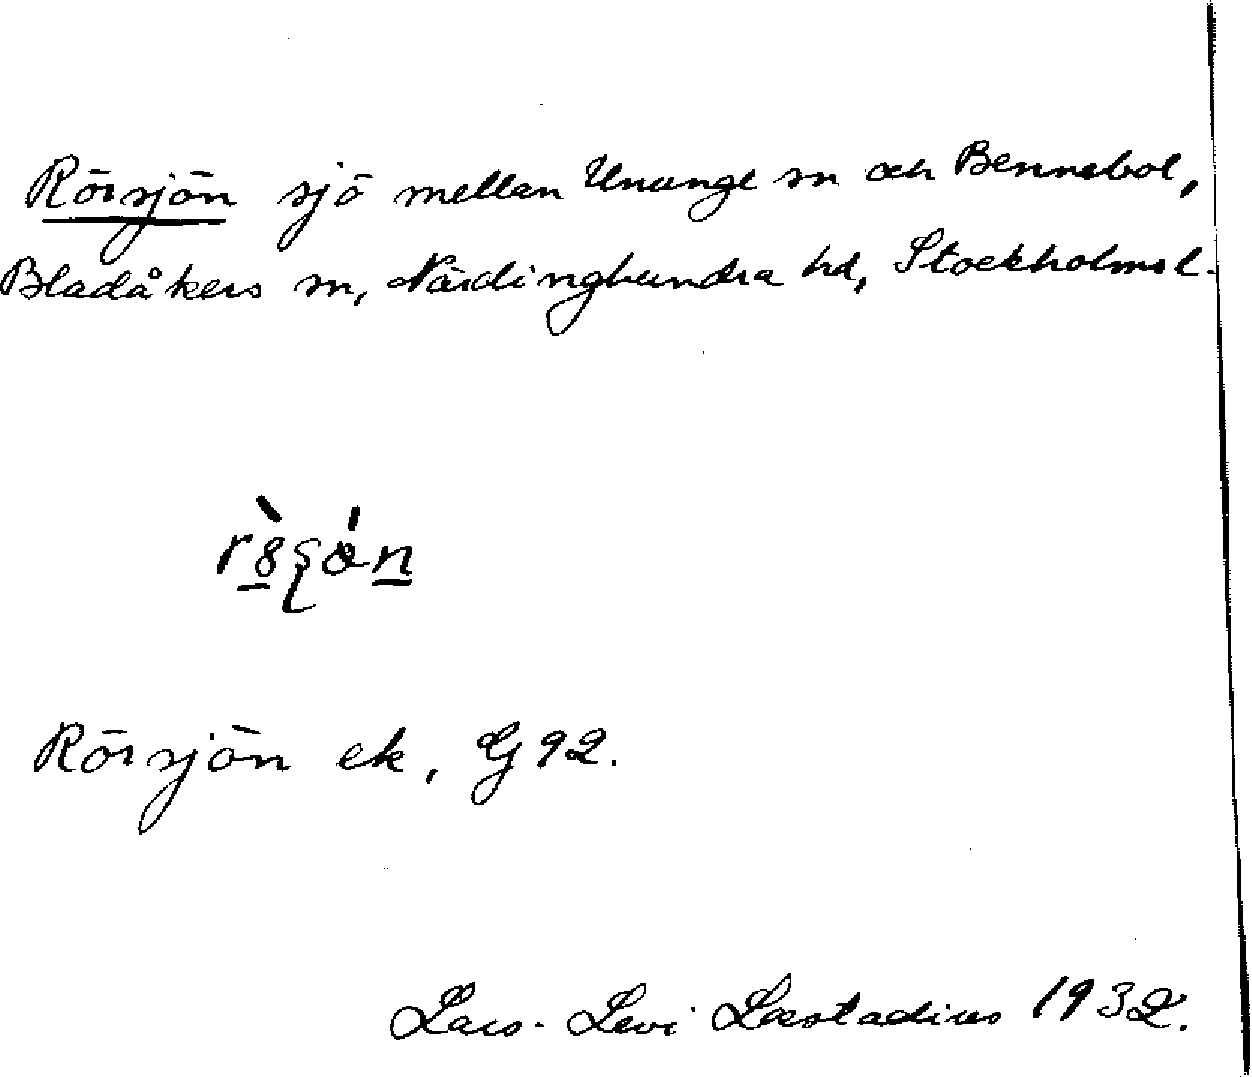 Rörsjön sjö mellan Ununge sn och Bennebol,
Bladåkers sn, Närdinghundra hd, Stockholms l.
Rörsjön ek, G 92.
Lars-Levi Læstadius 1932.